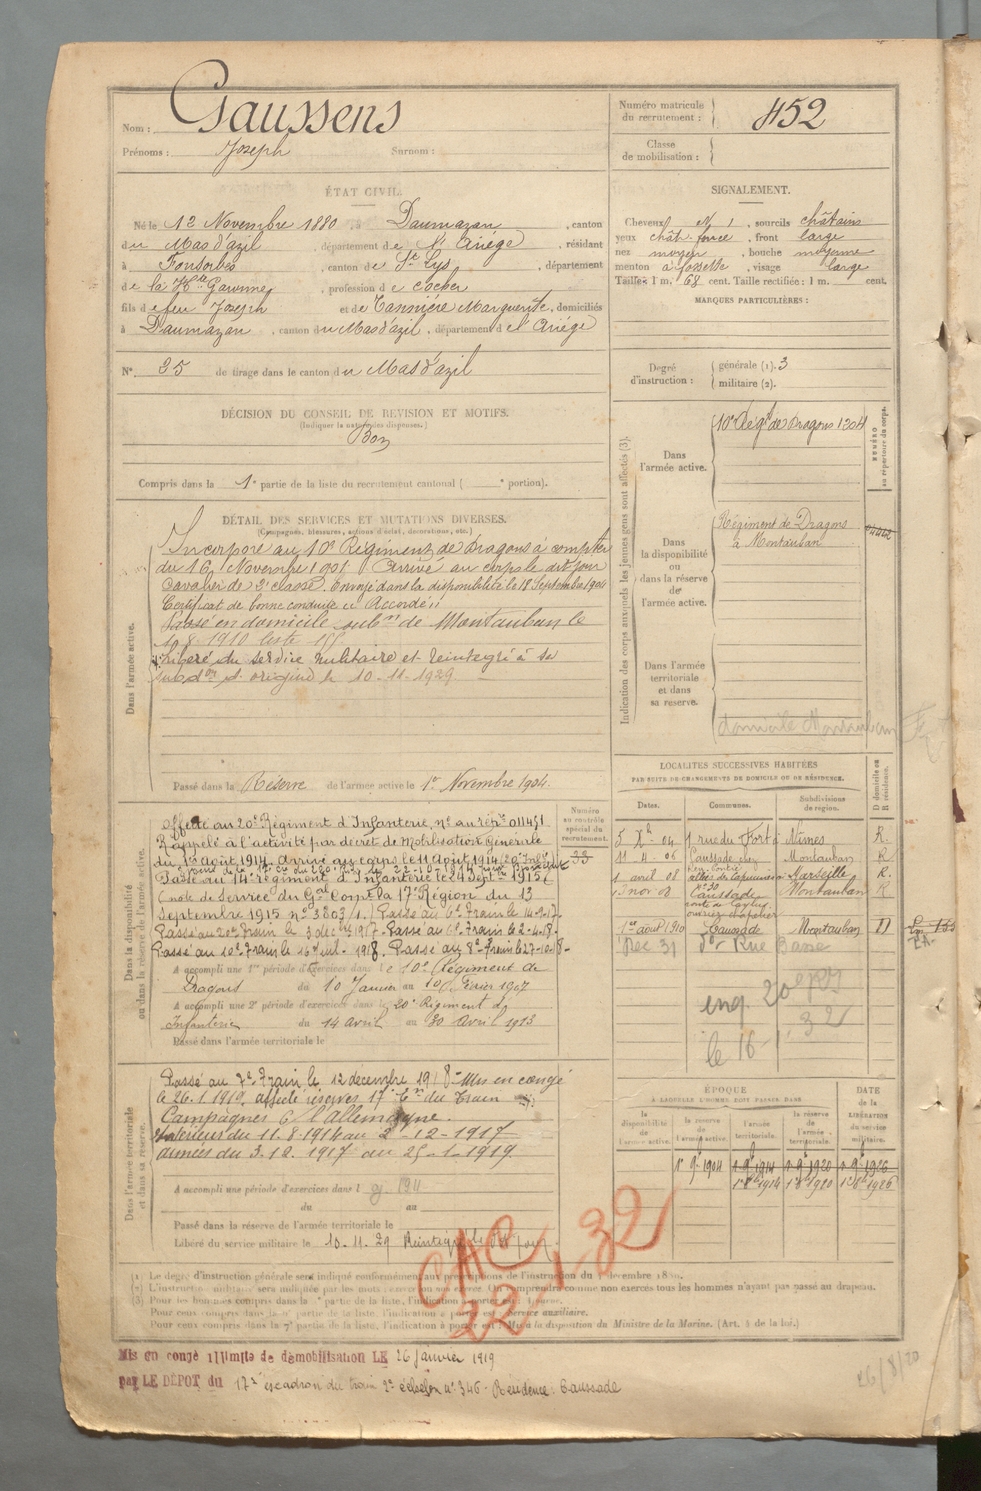 Nom : Gaussens
Prénoms : Joseph Surnom :
Numéro matricule du recrutement : 452
Classe de mobilisation :
ÉTAT CIVIL.
Né le 12 Novembre 1880, à Daumazan, canton
du Mas d'azil, département de l'Ariège, résidant
à Fonsorbes, canton de St Lys, département
de la Hte Garonne, profession de cocher
fils de feu Joseph et de Tannière Marguerite, domiciliés
à Daumazan, canton du Mas d'azil, département de l'Ariège
N° 35 de tirage dans le canton du Mas d'azil
DÉCISION DU CONSEIL DE REVISION ET MOTIFS.
(Indiquer la nature des dispenses.)
Bon
Compris dans la 1e partie de la liste du recrutement cantonal ( e portion).
SIGNALEMENT.
Cheveux N 1, sourcils châtains
yeux chât. foncé, front large
nez moyen, bouche moyenne
menton à fossette, visage large
Taille : 1 m. 68 cent. Taille rectifiée : 1 m. cent.
MARQUES PARTICULIÈRES :
Degré d'instruction : générale (1). 3
militaire (2).
DÉTAIL DES SERVICES ET MUTATIONS DIVERSES.
(Campagnes, blessures, actions d'éclat, décorations, etc.)
Dans l'armée active.
Incorporé au 10e Régiment de Dragons à compter
du 16 Novembre 1901. Arrivé au corps le dit jour
Cavalier de 2e classe. Envoyé dans la disponibilité le 18 Septembre 1904
Certificat de bonne conduite "Accordé"
Passé en domicile subon de Montauban le
10-8-1910 liste
Libéré du service militaire et réintégré à sa
subdon d'origine le 10-11-1929
Passé dans la Réserve de l'armée active le 1er Novembre 1904.
Indication des corps auxquels les jeunes gens sont affectés (3).
NUMÉRO au répertoire du corps.
Dans l'armée active.
10e Régt de Dragons 1304
Dans la disponibilité ou dans la réserve de l'armée active.
Régiment de Dragons
à Montauban
Dans l'armée territoriale et dans sa reserve.
domicile Montauban
Dans la disponibilité ou dans la réserve de l'armée active.
Numéro au contrôle spécial du recrutement.
33
Affecté au 20e Régiment d'Infanterie, no au répre 011451
Rappelé à l'activité par décret de Mobilisation Générale
du 1er Août 1914. Arrivé au corps le 11 août 1914 (20e Infie)
Passé au 14e régiment d'Infanterie le 24 Septbre 1915
(note de Service du Gal Comt la 17e Région du 13
Septembre 1915 no 3803/1.) Passé au 6e Train le 14-9-17.
Passé au 20e Train le 3 décbre 1917. Passé au 6e Train le 2-4-18.
Passé au 10e Train le 16 juil. 1918. Passé au 8e Train le 27-10-18
A accompli une 1re période d'exercices dans le 10e Régiment de
Dragons du 10 Janvier au 10 Février 1907
A accompli une 2e période d'exercices dans le 20e Régiment d'
Infanterie du 14 avril au 30 avril 1913
Passé dans l'armée territoriale le
LOCALITÉS SUCCESSIVES HABITÉES
PAR SUITE DE CHANGEMENTS DE DOMICILE OU DE RÉSIDENCE.
Dates. Communes. Subdivisions de région. D domicile ou R résidence.
5 Xbre 04 1 rue du Fort Nimes R.
11-4-06 Caussade Montauban R
1 avril 08 allée des Capucines Marseille R.
1 nov 08 no 30 Caussade Montauban R
route de Caylus
ouvrier chapelier
1er août 1910 Caussade Montauban D
Dec 31 do Rue Basse
enq. 20
32
le 16-1
Dans l'armée territoriale et dans sa reserve.
Passé au 7e Train le 12 décembre 1918. Mis en congé
le 26.1.1919, affecté réserves 17e Eon du Train
Campagnes C/ l'Allemagne.
Intérieur du 11.8.1914 au 2-12-1917
armées du 3.12.1917 au 25-1-1919.
A accompli une période d'exercices dans l
du au
Passé dans la réserve de l'armée territoriale le
Libéré du service militaire le 10.11.29
ÉPOQUE
À LAQUELLE L'HOMME DOIT PASSER DANS
la disponibilité de l'armée active. la réserve de l'armée active. l'armée territoriale. la réserve de l'armée territoriale. DATE de la LIBÉRATION du service militaire.
1er 9bre 1904 1er 9bre 1914 1er 9bre 1920 1er 9bre 1926
1er 8bre 1914 1er 8bre 1920 1er 8bre 1926
CAC
22.1.32
(1) Le degré d'instruction générale sera indiqué conformément aux prescriptions de l'instruction du décembre
(2) L'instruction militaire sera indiquée par les mots exercé ou non exercé. On comprendra comme non exercés tous les hommes n'ayant pas passé au drapeau.
(3) Pour les hommes compris dans la partie de la liste, l'indication à porter est :
Pour ceux compris dans la partie de la liste, l'indication à porter est : Service auxiliaire.
Pour ceux compris dans la 7e partie de la liste, l'indication à porter est : Mis à la disposition du Ministre de la Marine. (Art. 4 de la loi.)
Mis en congé illimité de démobilisation LE 26 janvier 1919
par LE DÉPOT du 17e escadron du train 2e échelon no 346. Résidence : Caussade
26/8/20